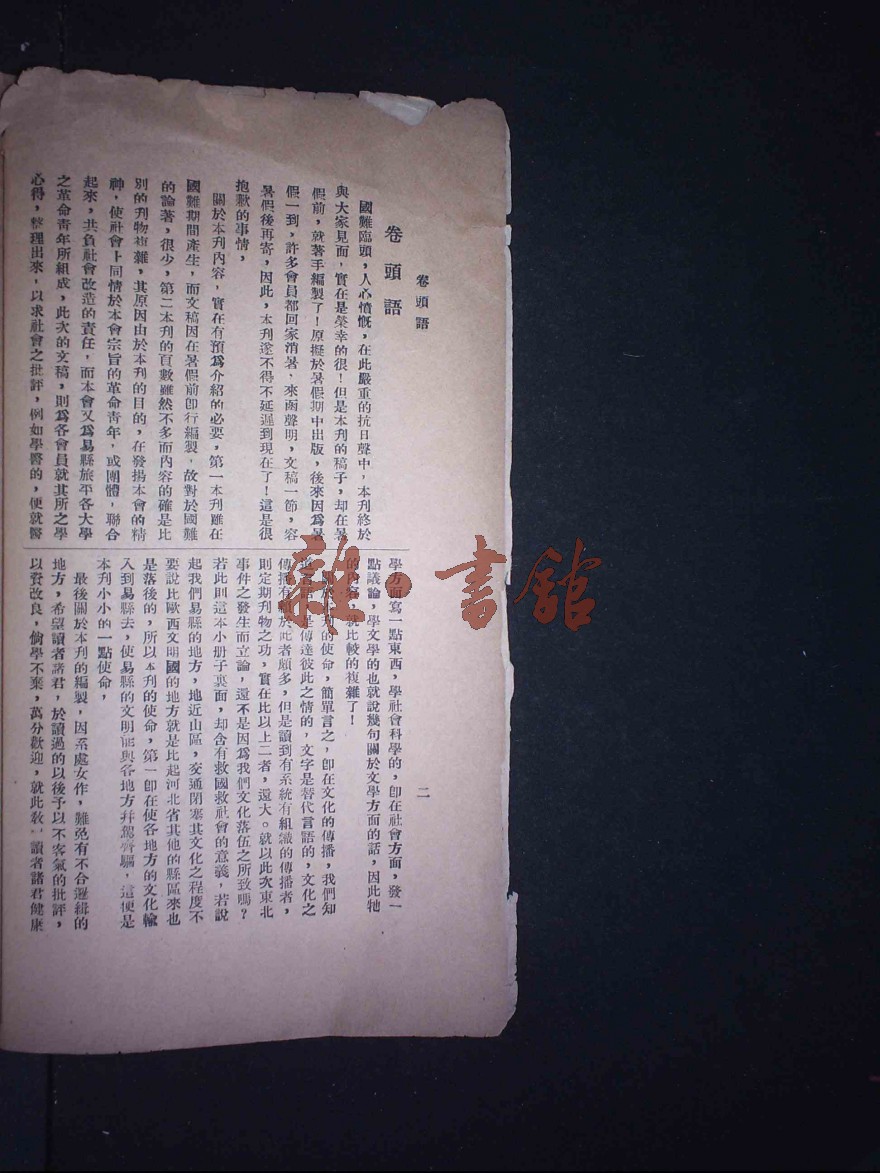 卷頭語
二
卷頭語
國難臨頭，人心憤慨，在此嚴重的抗日聲中，本刊終於
與大家見面，實在是榮幸的很！但是本刊的稿子，却在暑
假前，就著手編製了！原擬於暑假期中出版，後來因爲暑
假一到，許多會員都回家消暑，來函聲明，文稿一節，容
暑假後再寄，因此，本刊遂不得不延遲到現在了！這是很
抱歉的事情，
關於本刊內容，實在有預爲介紹的必要，第一本刊雖在
國難期間產生，而文稿因在暑假前卽行編製，故對於國難
的論著，很少，第二本刊的頁數雖然不多而內容的確是比
別的刊物複雜，其原因由於本刊的目的，在發揚本會的精
神，使社會上同情於本會宗旨的革命靑年，或團體，聯合
起來，共負社會改造的責任，而本會又爲易縣旅平各大學
之革命靑年所組成，此次的文稿，則爲各會員就其所之學
心得，整理出來，以求社會之批評，例如學醫的，便就醫
學方面寫一點東西，學社會科學的，卽在社會方面，發一
點議論，學文學的也就說幾句關於文學方面的話，因此牠
的內容，就比較的複雜了！
關於本刊的使命，簡單言之，卽在文化的傳播，我們知
道言語，是傳達彼此之情的，文字是替代言語的，文化之
傳播有賴於此者頗多，但是讀到有系統有組識的傳播者，
則定期刊物之功，實在比以上二者，還大。就以此次東北
事件之發生而立論，還不是因爲我們文化落伍之所致嗎？
若此則這本小册子裏面，却含有救國救社會的意義，若說
起我們易縣的地方，地近山區，交通閉塞其文化之程度不
要說比歐西文明國的地方就是比起河北省其他的縣區來也
是落後的，所以本刊的使命，第一卽在使各地方的文化輸
入到易縣去，使易縣的文明能與各地方幷駕齊驅，這便是
本刊小小的一點使命，
最後關於本刊的編製，因系處女作，難免有不合邏緝的
地方，希望讀者諸君，於讀過的以後予以不客氣的批評，
以資改良，倘學不棄，萬分歡迎，就此敎，讀者諸君健康
雜·書館